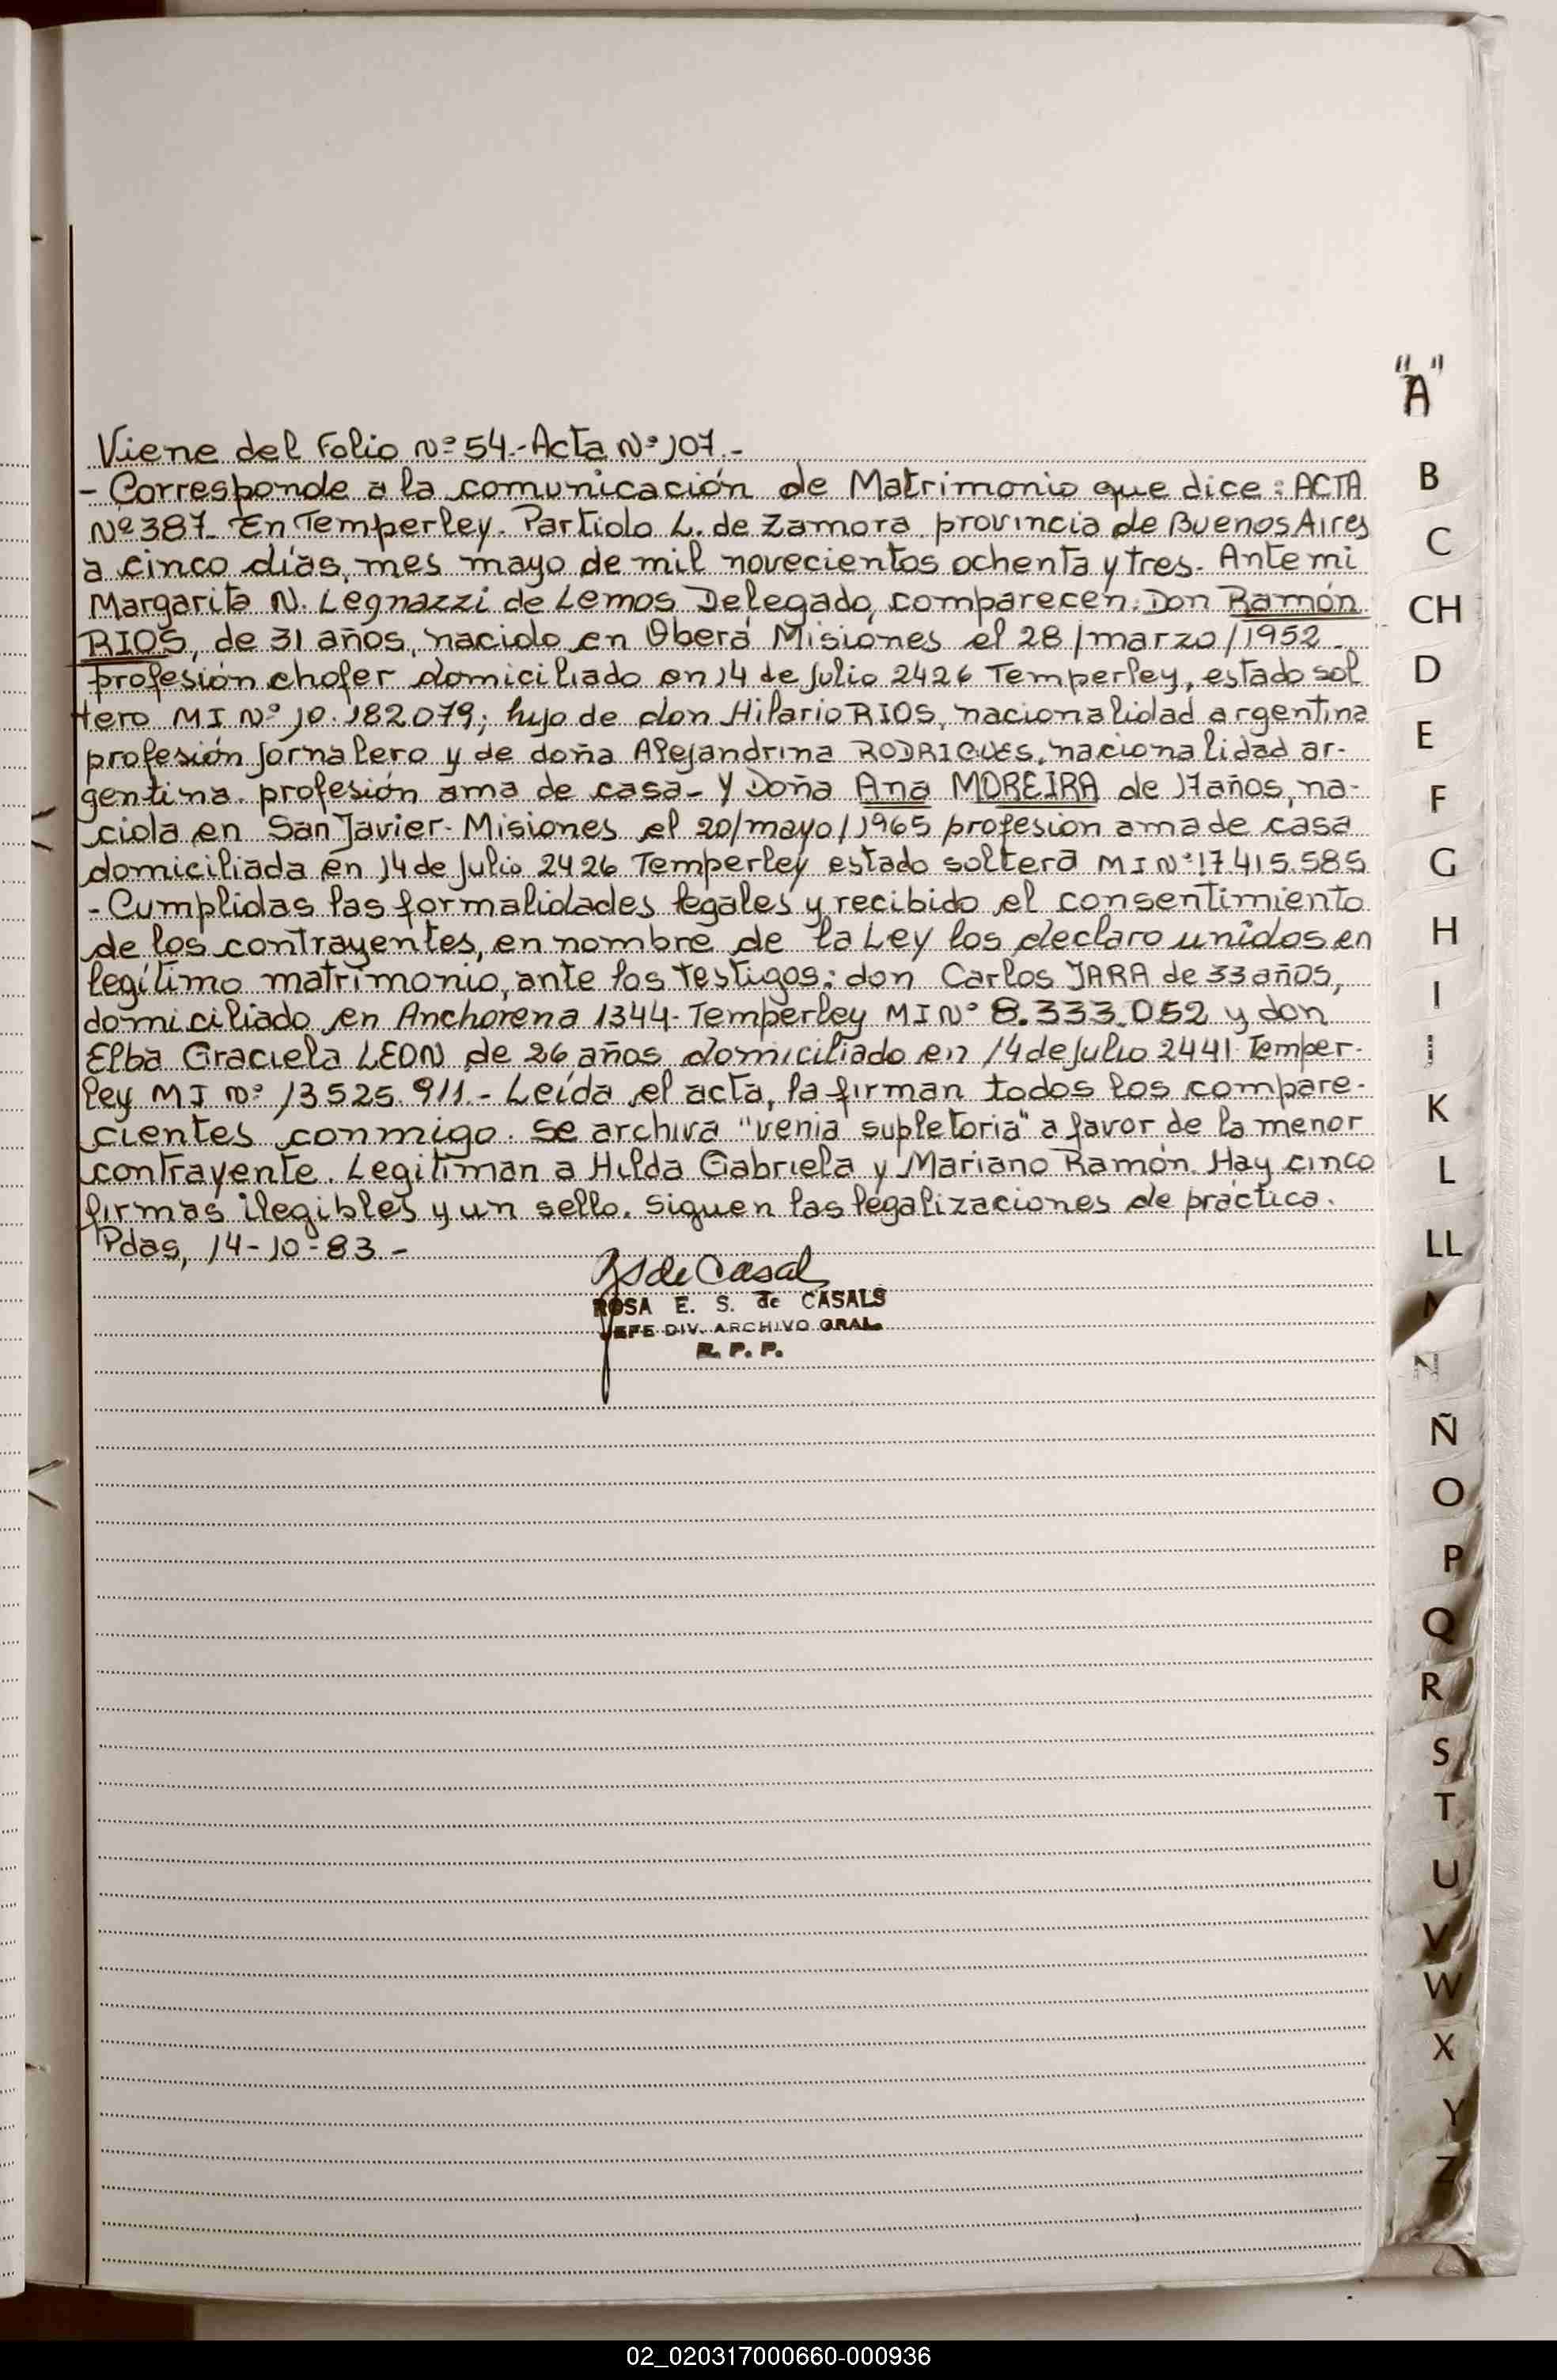 Viene del Folio Nº 54.- Acta Nº 107.-
- Corresponde a la comunicación de Matrimonio que dice: ACTA
Nº 387. En Temperley. Partido L. de Zamora provincia de Buenos Aires
a cinco días, mes mayo de mil novecientos ochenta y tres. Ante mi
Margarita N. Legnazzi de Lemos Delegado, comparecen: Don Ramón
RIOS, de 31 años, nacido en Oberá Misiones el 28/marzo/1952
profesión chofer domiciliado en 14 de Julio 2426 Temperley, estado sol
tero M I Nº 10.182079; hijo de don Hilario RIOS, nacionalidad argentina
profesión Jornalero y de doña Alejandrina RODRIGUES, nacionalidad ar-
gentina. profesión ama de casa - Y Doña Ana MOREIRA de 17 años, na-
cida en San Javier - Misiones el 20/mayo/1965 profesion ama de casa
domiciliada en 14 de Julio 2426 Temperley estado soltera M I Nº 17.415.585
- Cumplidas las formalidades legales y recibido el consentimiento
de los contrayentes, en nombre de la Ley los declaro unidos en
legítimo matrimonio, ante los testigos: don Carlos JARA de 33 años,
domiciliado en Anchorena 1344 - Temperley M I Nº 8.333.052 y don
Elba Graciela LEON de 26 años domiciliado en 14 de Julio 2441 Temper-
ley M I Nº 13525.911.- Leída el acta, la firman todos los compare-
cientes conmigo. Se archiva "venia supletoria" a favor de la menor
contrayente. Legitiman a Hilda Gabriela y Mariano Ramón. Hay cinco
firmas ilegibles y un sello. Siguen las legalizaciones de práctica.
Pdas, 14-10-83 -
RS de Casal
ROSA E. S. de CASALS
JEFE DIV. ARCHIVO GRAL.
R. P. P.
"A"
B
C
CH
D
E
F
G
H
I
J
K
L
LL
N
Ñ
O
P
Q
R
S
T
U
V
W
X
Y
Z
02_020317000660-000936